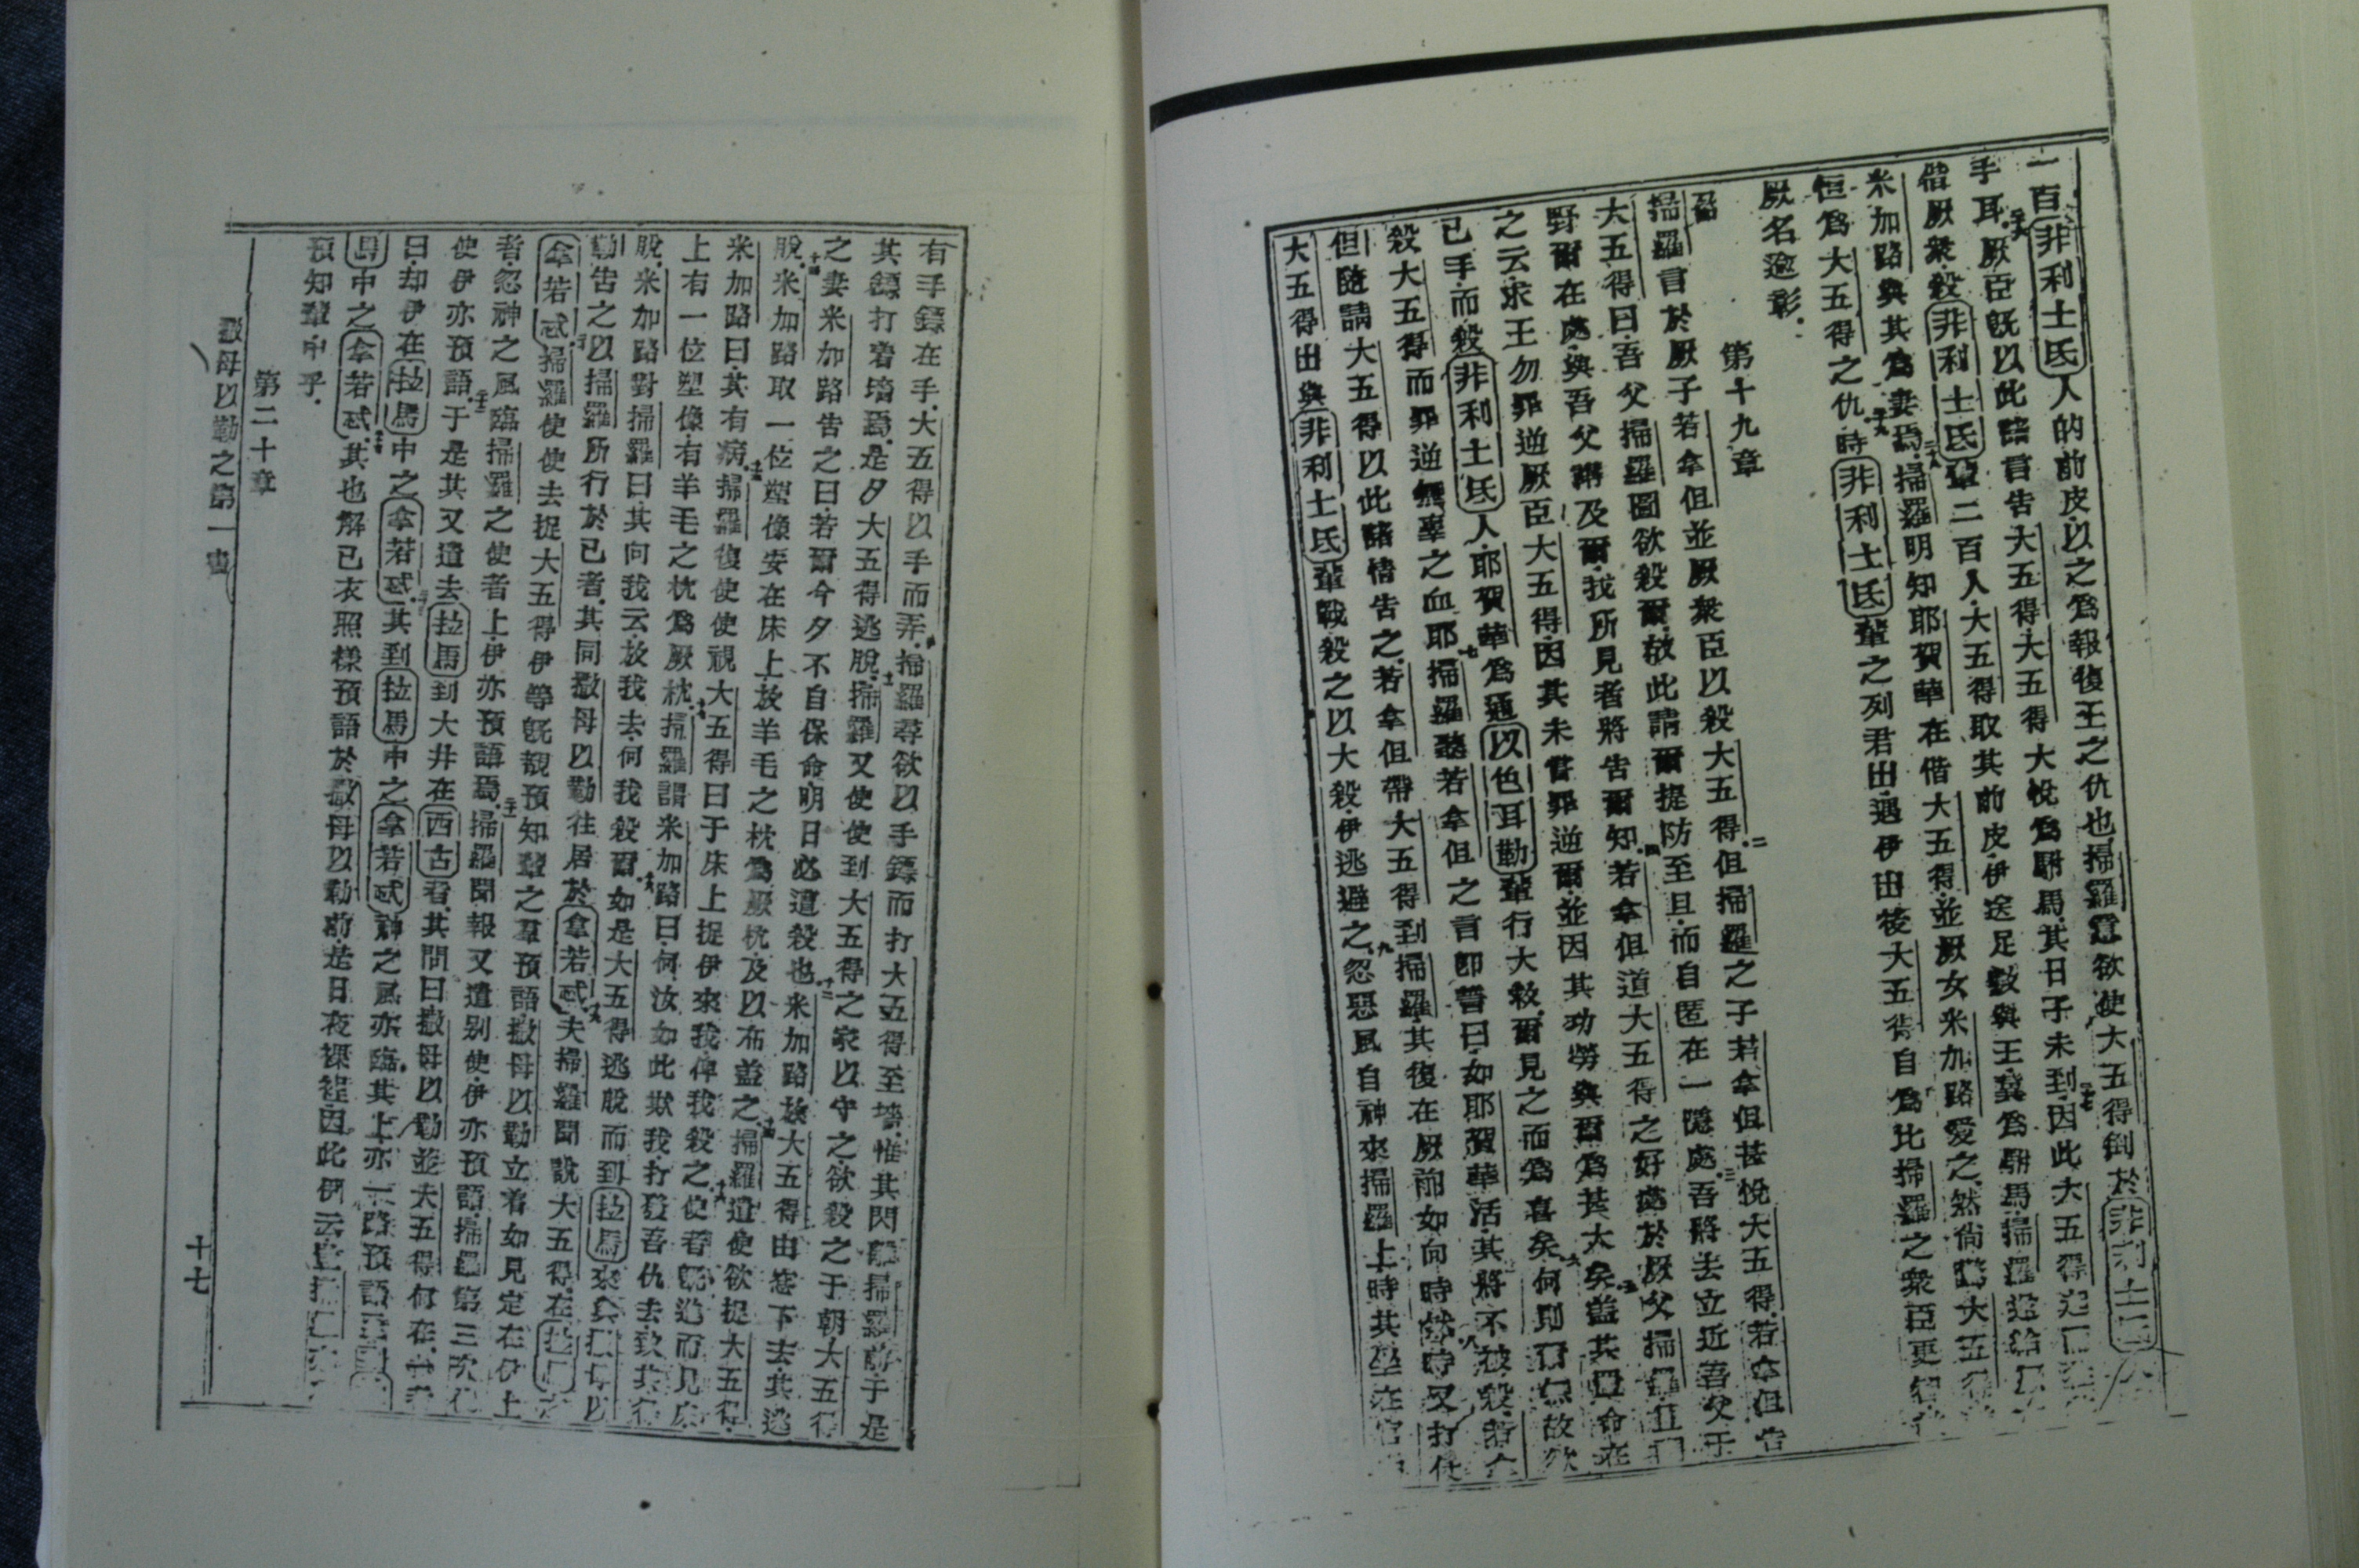 一百非利士氏人的前皮以之為報復王之仇也掃羅意欲使大五得倒於非利士氏
手耳厥臣既以此諸言告大五得大五得大悅為駙馬其日子未到因此大五得
偕厥衆殺非利士氏輩二百人大五得取其前皮伊送足數與王冀為駙馬掃羅
米加路與其為妻焉掃羅明知耶賀華在偕大五得並厥女米加路愛之然尚為大五得
恒為大五得之仇時非利士氏輩之列君出遇伊出後大五得自為比掃羅之衆臣更
厥名逾彰
第十九章
掃羅言於厥子若拿但並厥衆臣以殺大五得但掃羅之子若拿但甚悅大五得若拿但告
大五得曰吾父掃羅圖欲殺爾故此請爾提防至旦而自匿在一隱處吾將去立近吾父于
野爾在處與吾父講及爾我所見者將告爾知若拿但道大五得之好處於厥父掃羅且
之云求王勿罪逆厥臣大五得因其未嘗罪逆爾並因其功勞與爾為甚大矣蓋其命在
已手而殺非利士氏人耶賀華為通以色耳勒輩行大救爾見之而為喜矣何則爾無故欲
殺大五得而罪逆無辜之血耶掃羅聽若拿但之言即誓曰如耶賀華活其將不被殺若
但隨請大五得以此諸情告之若拿但帶大五得到掃羅其復在厥前如向時然時又打仗
大五得出與非利士氏輩戰殺之以大殺伊逃避之忽惡風自神來掃羅上時其坐在
有手鏢在手大五得以手而弄掃羅尋欲以手鏢而打大五得至墻惟其閃離掃羅前于是
其鏢打着墻焉是夕大五得逃脫掃羅又使使到大五得之家以守之欲殺之于朝大五得
之妻米加路告之曰若爾今夕不自保命明日必遭殺也米加路放大五得由窓下去其逃
脫米加路取一位塑像安在床上放羊毛之枕為厥枕及以布蓋之掃羅遣使欲捉大五得
米加路曰其有病掃羅復使使視大五得曰于床上捉伊來我俾我殺之使者既進而見床
上有一位塑像有羊毛之枕為厥枕掃羅謂米加路曰何汝如此欺我打發吾仇去致其
脫米加路對掃羅曰其向我云放我去何我殺爾如是大五得逃脫而到拉馬來與撒母以
勒告之以掃羅所行於已者其同撒母以勒往居於拿若忒夫掃羅聞說大五得在拉馬
拿若忒掃羅使使去捉大五得伊等既覩預知輩之羣預語撒母以勒立着如見定在伊上
者忽神之風臨掃羅之使者上伊亦預語焉掃羅聞報又遣别使伊亦預語掃羅第三次
使伊亦預語于是其又遣去拉馬到大井在西古者其問曰撒母以勒並大五得何在
曰却伊在拉馬中之拿若忒其到拉馬中之拿若忒神之風亦臨其上亦一路預語
馬中之拿若忒其也解已衣照樣預語於撒母以勒前是日夜裸裎因此伊云
預知輩中乎
第二十章
撒母以勒之第一書
十七